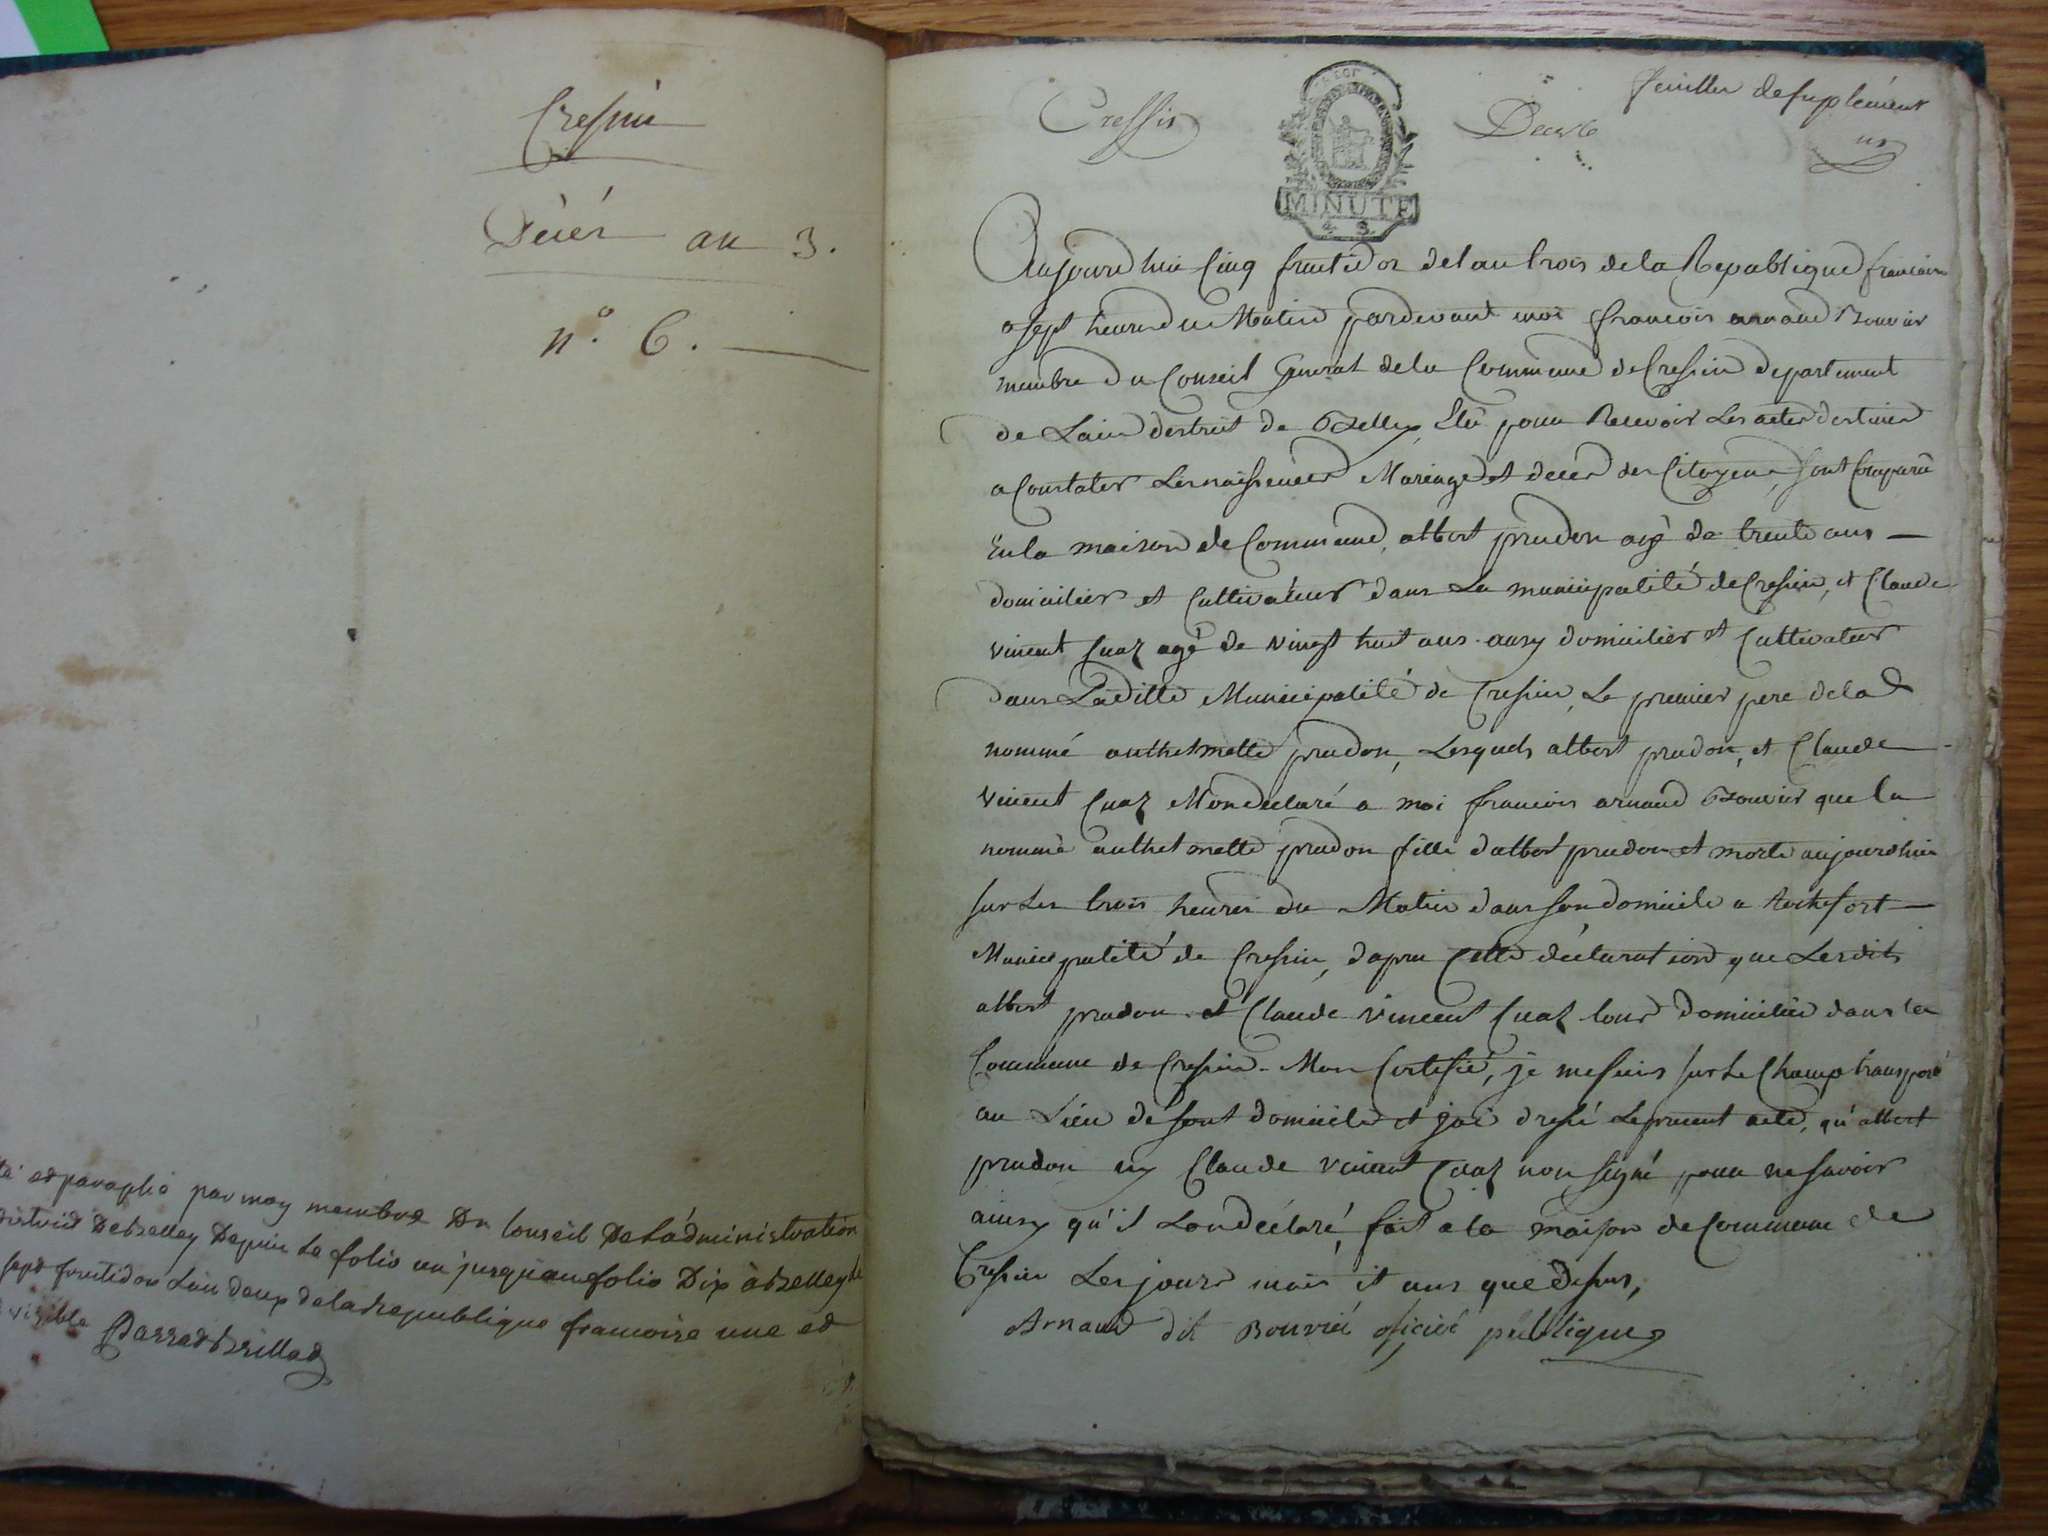 Cressin
Décès an 3.
n.° 6.
et paraphé par moy membre Du Conseil De L'administration
district De Belley Depuis Le folio un jusqu'au folio Dix à Belley le
sept fructidor L'an deux de la Republique francoise une et
visible
Cressin
Decès
feuilles de suplément
un
MINUTE
Aujourd huit Cinq fructidor de lan trois de la Republique francaise
a sept heure du Matin pardevant moi francois arnaud Bouvier
membre du Conseil General de la Commune de Cressin departement
de Lain destrict de Belley Elu pour Recevoir Les actes destinés
a Constater Les naissences Mariage et deces des Citoyens, sont Comparu
En la maison de Commune, albert prudon agé de trente ans —
domicilier et Cultivateur dans La municipalité de Cressin, et Claude
vincent Cuaz agé de vingt huit ans aussy domicilier et Cultivateur
dans Laditte Municipalité de Cressin, Le premier pere de la d
nommé anthelmette prudon, Lesquels albert prudon, et Claude
vincent Cuaz Mon declaré a moi francois arnaud Bouvier que la
nommé anthelmette prudon fille d albert prudon et morte aujourdhuis
sur Les trois heures du Matin dans son domicile a Rochefort —
Municipalité de Cressin, dapres Cette déclaration que Lesdits
albert prudon et Claude vincent Cuaz tous domicilié dans la
Commune de Cressin. Mon Certifié, je me suis sur Le Champ transporté
au Lieu de sont domicile et jai dressé Le present acte, qu'albert
prudon ny Claude vincent Cuaz non signé pour ne savoir
ainsy qu'il Lon déclaré, fait a la maison de Commune de
Cressin Les jours mois et ans que dessus,
Arnaud dit Bouvié oficié publique